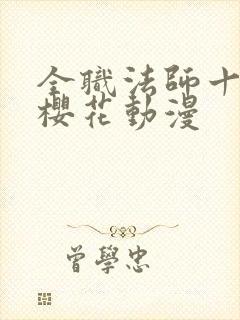 全職法師十
櫻花動漫
曾學忠